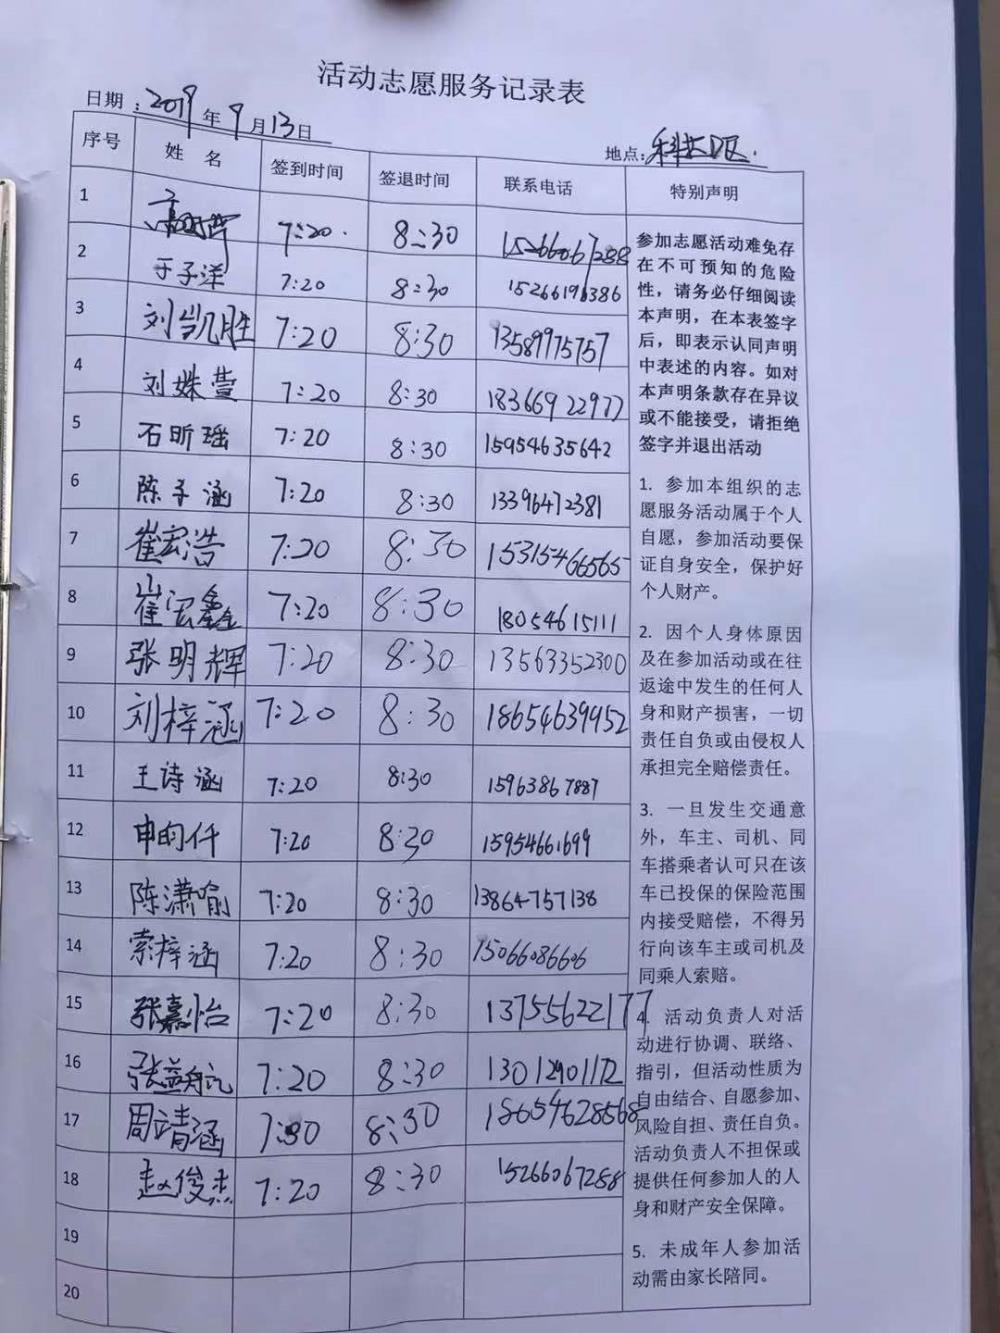 活动志愿服务记录表
日期：2019年9月13日
地点：科大D区.
序号 姓名 签到时间 签退时间 联系电话 特别声明
1 7:20. 8:30 15266067288
2 于子洋 7:20 8:30 15266196386
3 刘凯胜 7:20 8:30 13589975757
4 刘姝萱 7:20 8:30 18366922977
5 石昕瑶 7:20 8:30 15954635642
6 陈子涵 7:20 8:30 13396472381
7 崔宏浩 7:20 8:30 15315466565
8 崔宏鑫 7:20 8:30 18054615111
9 张明辉 7:20 8:30 13563352300
10 刘梓涵 7:20 8:30 18654639952
11 王诗涵 7:20 8:30 15963867887
12 申昀仟 7:20 8:30 15954661699
13 陈潇喻 7:20 8:30 13864757138
14 索梓涵 7:20 8:30 15066086606
15 张嘉怡 7:20 8:30 13755622177
16 张益航 7:20 8:30 13012901172
17 周靖涵 7:30 8:30 18654628568
18 赵俊杰 7:20 8:30 15266067288
19
20
参加志愿活动难免存
在不可预知的危险
性，请务必仔细阅读
本声明，在本表签字
后，即表示认同声明
中表述的内容。如对
本声明条款存在异议
或不能接受，请拒绝
签字并退出活动
1. 参加本组织的志
愿服务活动属于个人
自愿，参加活动要保
证自身安全，保护好
个人财产。
2. 因个人身体原因
及在参加活动或在往
返途中发生的任何人
身和财产损害，一切
责任自负或由侵权人
承担完全赔偿责任。
3. 一旦发生交通意
外，车主、司机、同
车搭乘者认可只在该
车已投保的保险范围
内接受赔偿，不得另
行向该车主或司机及
同乘人索赔。
4. 活动负责人对活
动进行协调、联络、
指引，但活动性质为
自由结合、自愿参加、
风险自担、责任自负。
活动负责人不担保或
提供任何参加人的人
身和财产安全保障。
5. 未成年人参加活
动需由家长陪同。